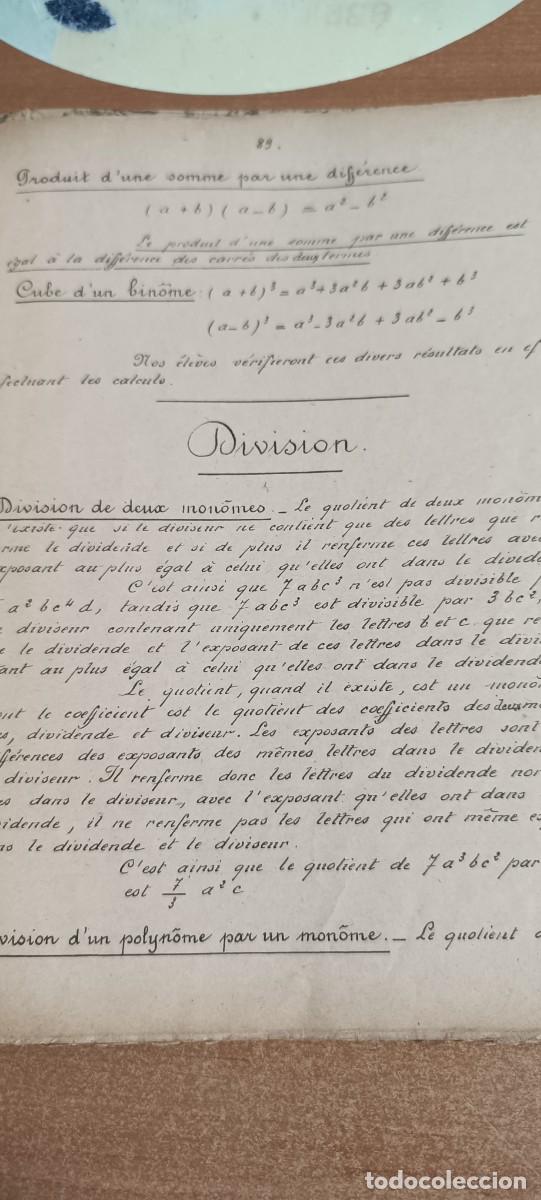 89.
Produit d'une somme par une différence
(a + b) (a - b) = a² - b²
Le produit d'une somme par une différence est
égal à la différence des carrés des deux termes
Cube d'un binôme : (a + b)³ = a³ + 3a²b + 3ab² + b³
(a - b)³ = a³ - 3a²b + 3ab² - b³
Nos élèves vérifieront ces divers résultats en ef
fectuant les calculs.
Division.
Division de deux monômes. _ Le quotient de deux monôm
n'existe que si le diviseur ne contient que des lettres que r
erme le dividende et si de plus il renferme ces lettres avec
exposant au plus égal à celui qu'elles ont dans le divide
C'est ainsi que 7abc³ n'est pas divisible p
a²bc⁴d, tandis que 7abc³ est divisible par 3bc²,
e diviseur contenant uniquement les lettres b et c que re
e le dividende et l'exposant de ces lettres dans le divi
tant au plus égal à celui qu'elles ont dans le dividend
Le quotient, quand il existe, est un monô
ont le coefficient est le quotient des coefficients des deux m
es, dividende et diviseur. Les exposants des lettres sont
fférences des exposants des mêmes lettres dans le dividen
diviseur. Il renferme donc les lettres du dividende non
es dans le diviseur, avec l'exposant qu'elles ont dans
vidende, il ne renferme pas les lettres qui ont même ex
ns le dividende et le diviseur.
C'est ainsi que le quotient de 7a³bc² par
est 7/3 a²c
vision d'un polynôme par un monôme. _ Le quotient d
todocoleccion